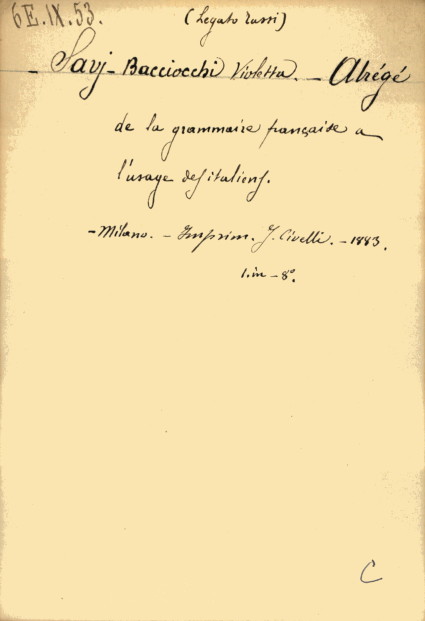 6E.IX.53.
(Legato Tassi)
- Savj-Bacciocchi Violetta. - Abrégé
de la grammaire française a
l'usage des italiens.
- Milano. - Imprim. J. Civelli. - 1883.
1. in - 8°.
C